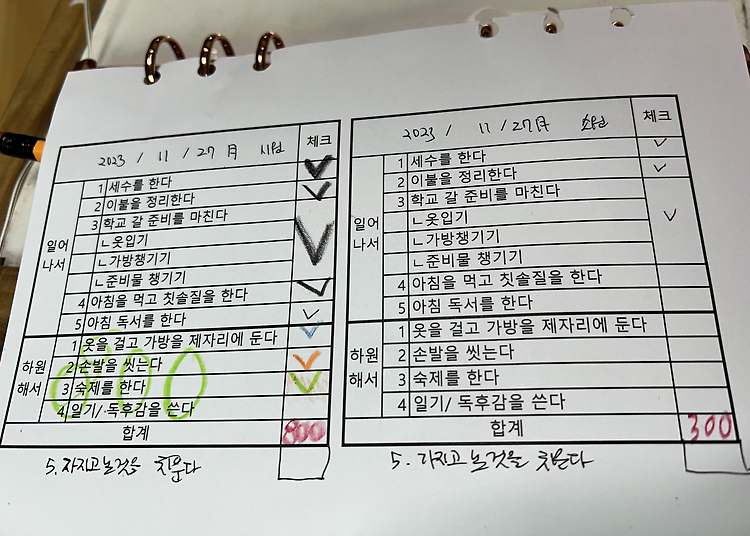 2023 / 11 / 27 월 체크
일어나서
1 세수를 한다
2 이불을 정리한다
3 학교 갈 준비를 마친다
ㄴ옷입기
ㄴ가방챙기기
ㄴ준비물 챙기기
4 아침을 먹고 칫솔질을 한다
5 아침 독서를 한다
하원해서
1 옷을 걸고 가방을 제자리에 둔다
2 손발을 씻는다
3 숙제를 한다
4 일기/ 독후감을 쓴다
합계 800
5. 가지고 논것을 치운다
2023 / 11 / 27 월 체크
일어나서
1 세수를 한다
2 이불을 정리한다
3 학교 갈 준비를 마친다
ㄴ옷입기
ㄴ가방챙기기
ㄴ준비물 챙기기
4 아침을 먹고 칫솔질을 한다
5 아침 독서를 한다
하원해서
1 옷을 걸고 가방을 제자리에 둔다
2 손발을 씻는다
3 숙제를 한다
4 일기/ 독후감을 쓴다
합계 300
5. 가지고 논것을 치운다